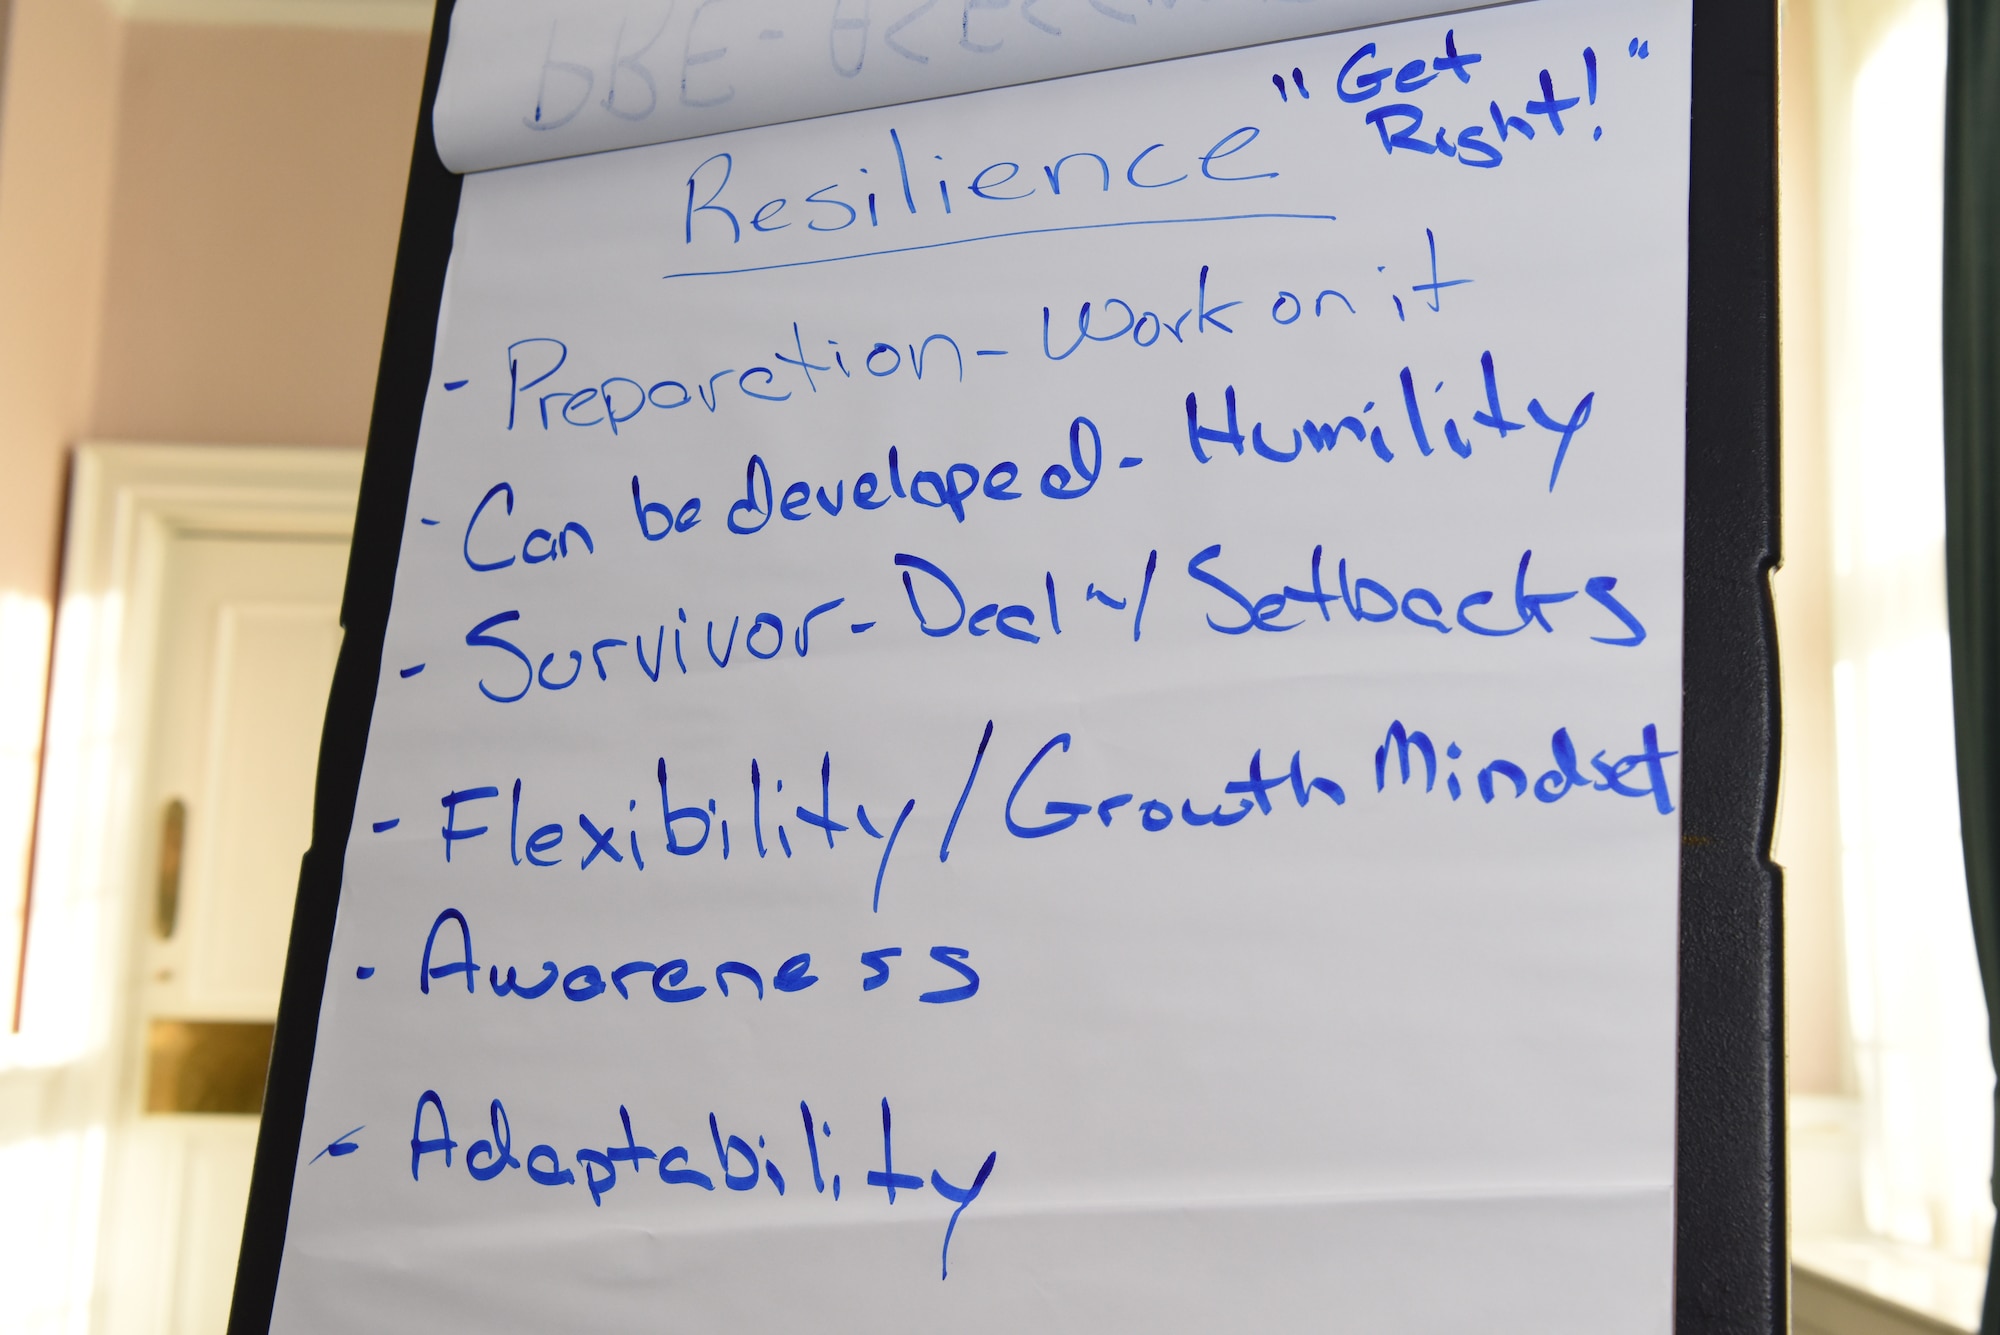 "Get
Right!"
Resilience
- Preparation - Work on it
- Can be developed - Humility
- Survivor - Deal w/ Setbacks
- Flexibility / Growth Mindset
- Awareness
- Adaptability